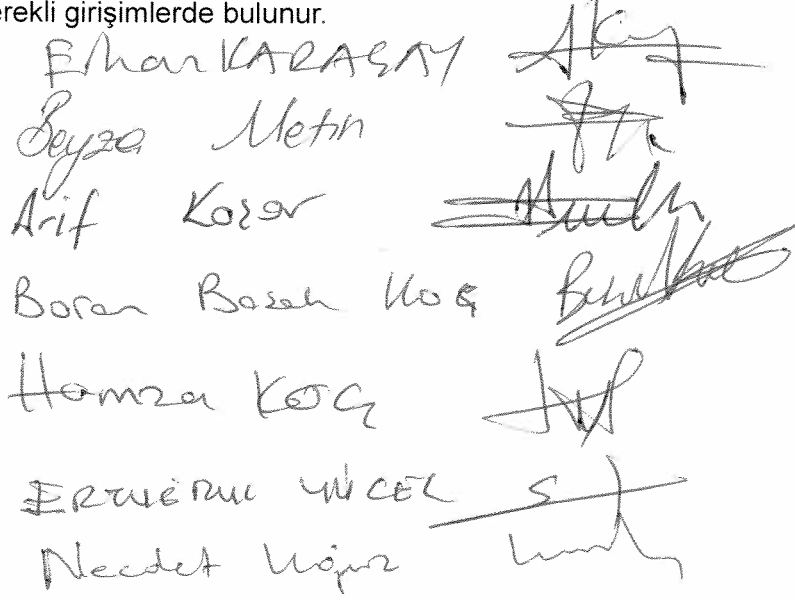 erekli girişimlerde bulunur.
Erhan KARAÇAY
Beyza Metin
Arif Koşar
Boran Başak Koç
Hamza KOÇ
ERTUĞRUL YÜCEL
Necdet